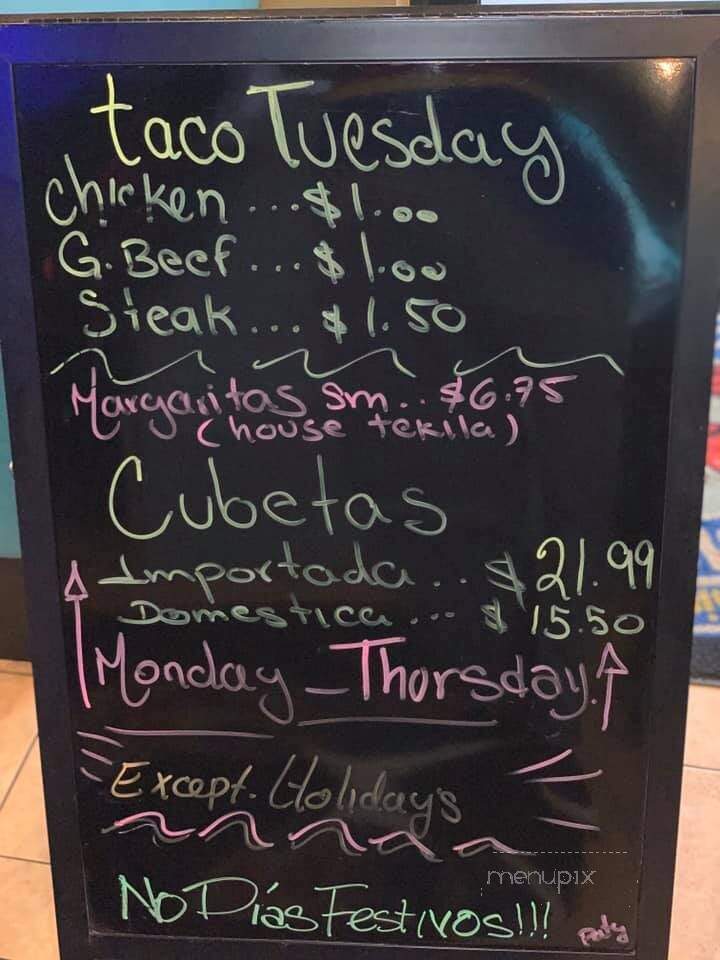 taco Tuesday
Chicken ... $1.00
G. Beef ... $1.00
Steak ... $1.50
Margaritas sm.. $6.75
(house tekila)
Cubetas
Importada .. $21.99
Domestica ... $15.50
Monday - Thorsday.
Except. Holidays
menupix
No Días Festivos!!!
Paty